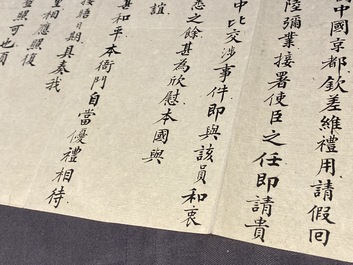 中國京都欽差維禮用請假回
陸彌業接署使臣之任即請貴
中比交涉事件即與該員和衷
悉之餘甚為欣慰本國與
誼
甚和平本衙門自當優禮相待
接晤日期具奏我
相應照復
照可也須